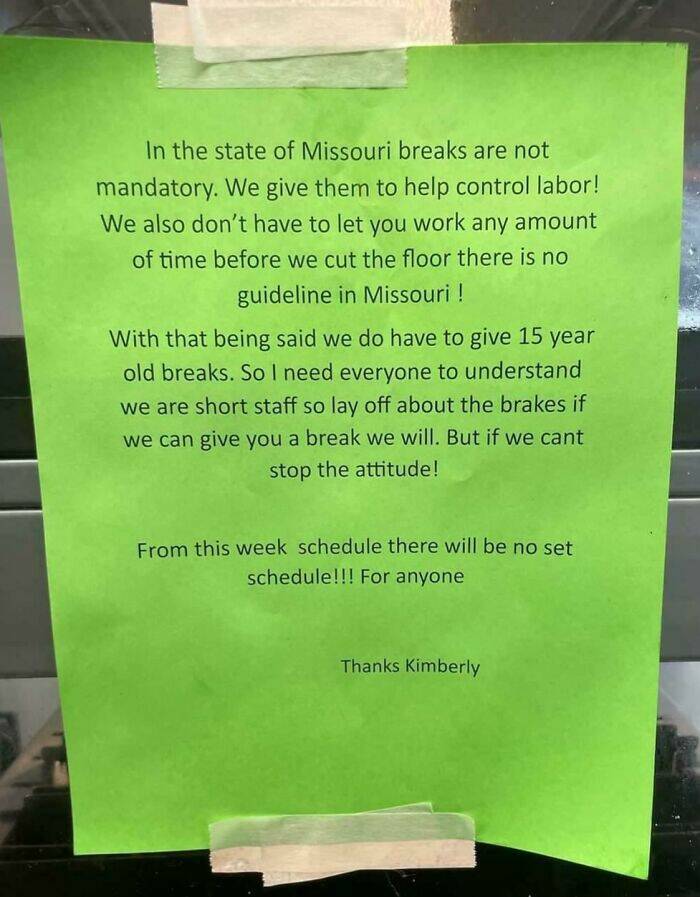 In the state of Missouri breaks are not
mandatory. We give them to help control labor!
We also don’t have to let you work any amount
of time before we cut the floor there is no
guideline in Missouri !
With that being said we do have to give 15 year
old breaks. So I need everyone to understand
we are short staff so lay off about the brakes if
we can give you a break we will. But if we cant
stop the attitude!
From this week  schedule there will be no set
schedule!!! For anyone
Thanks Kimberly